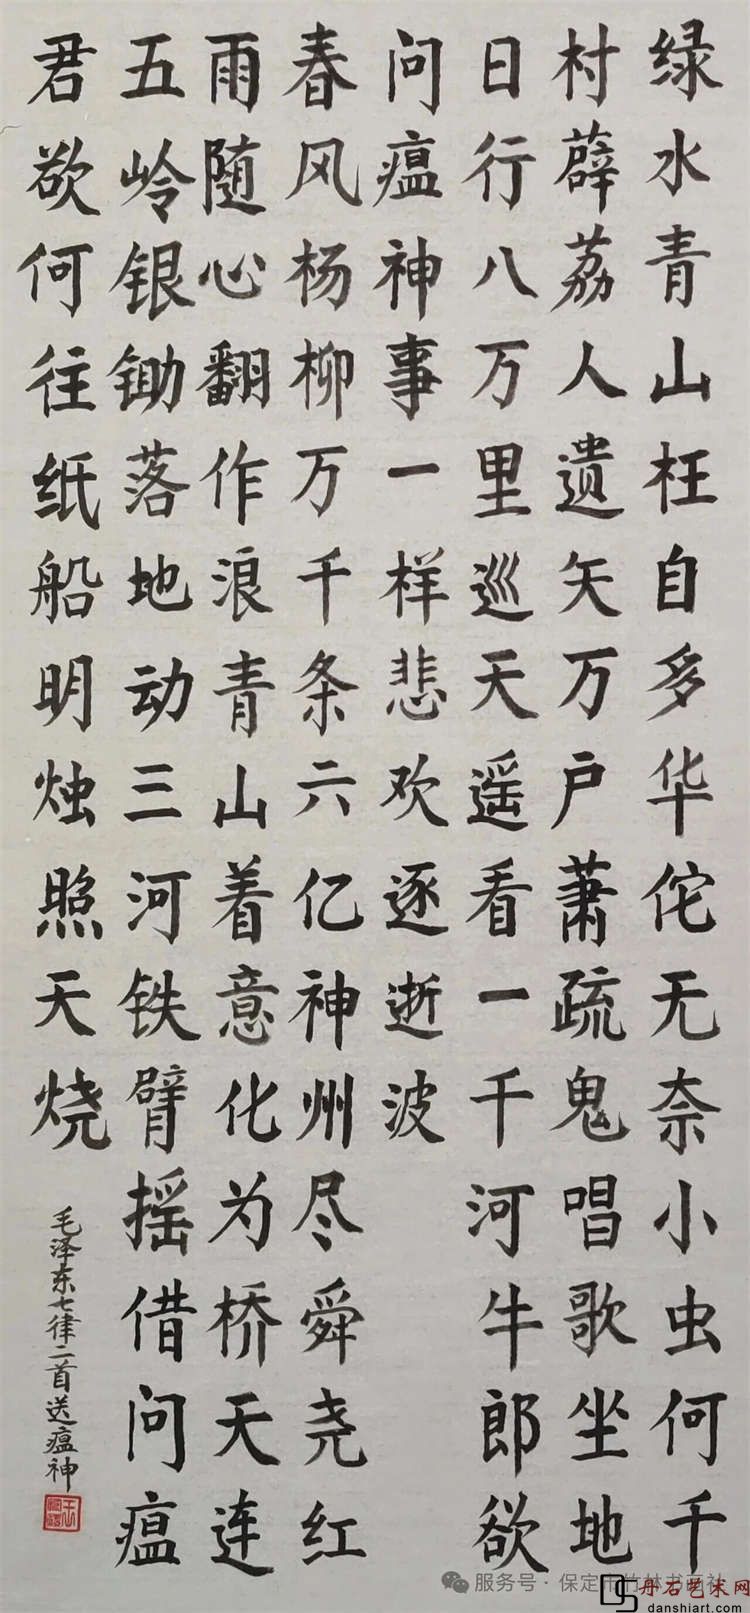 绿水青山枉自多华佗无奈小虫何千
村薜荔人遗矢万户萧疏鬼唱歌坐地
日行八万里巡天遥看一千河牛郎欲
问瘟神事一样悲欢逐逝波
春风杨柳万千条六亿神州尽舜尧红
雨随心翻作浪青山着意化为桥天连
五岭银锄落地动三河铁臂摇借问瘟
君欲何往纸船明烛照天烧
毛泽东七律二首送瘟神
服务号·保定市竹林书画社
丹石艺术网
danshiart.com